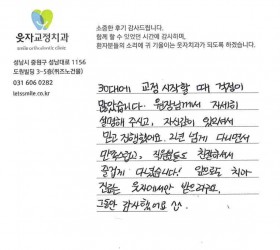 웃자교정치과
smile orthodontic clinic
성남시 중원구 성남대로 1156
도원빌딩 3~5층(퀴즈노건물)
031 606 0282
letssmile.co.kr
소중한 후기 감사드립니다.
함께 할 수 있었던 시간에 감사하며,
환자분들의 소리에 귀 기울이는 웃자교정치과가 되도록 하겠습니다.
30대에 교정 시작할 때 걱정이
많았습니다. 원장님께서 자세히
설명해 주시고, 자신감이 있으셔서
믿고 진행했어요. 2년 넘게 다니면서
만족스럽고, 직원분들도 친절하셔서
즐겁게 다녔습니다! 앞으로도 치아
진료는 웃자에서만 받으려구요.
그동안 감사했어요 ^^